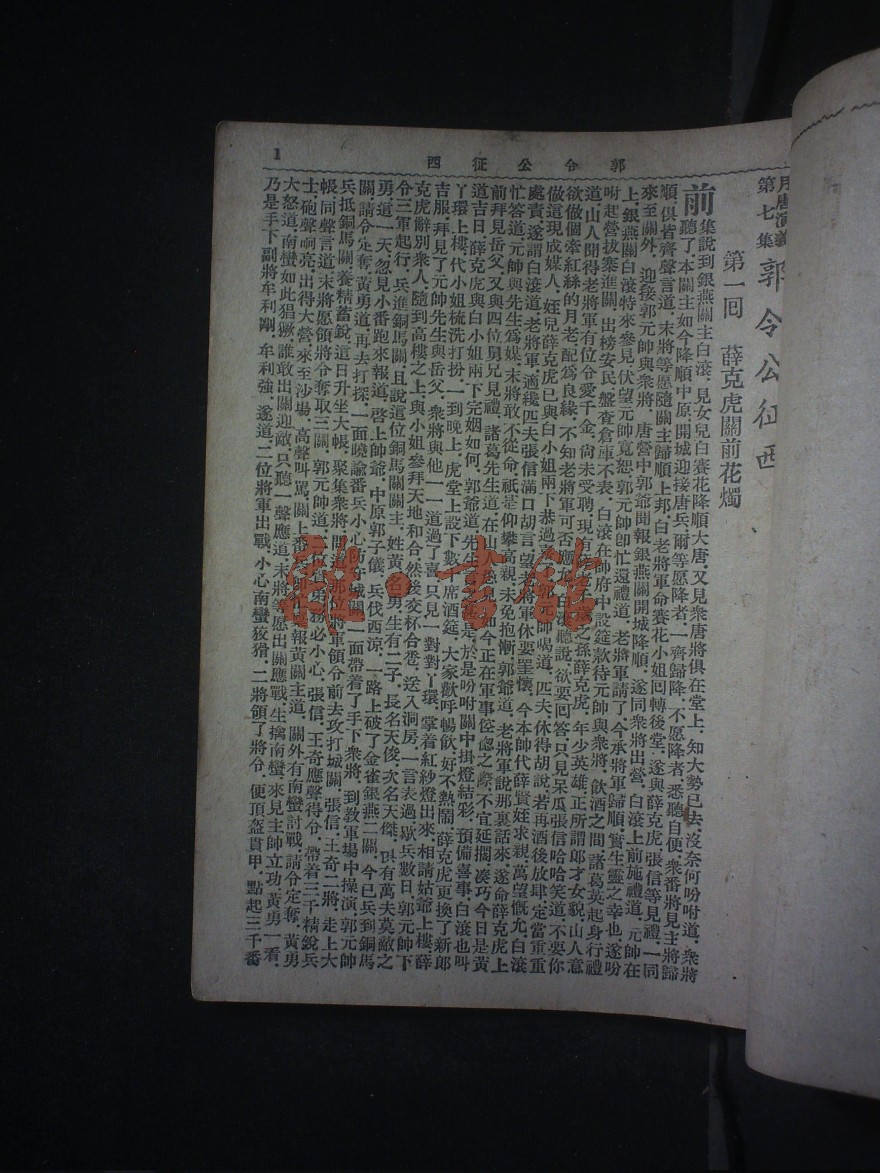 1
郭令公征西
第七集 郭令公征西
第一回 薛克虎關前花燭
前集說到銀燕關主白滾、見女兒白賽花降順大唐、又見衆唐將俱在堂上、知大勢已去、沒奈何吩咐道、衆將
聽了、本關主如今降順中原、開城迎接唐兵、爾等愿降者、一齊歸降、不愿降者、悉聽自便、衆番將見主將歸
順、俱皆齊聲言道、末將等愿隨關主歸順上邦、白老將軍命賽花小姐回轉後堂、遂與薛克虎、張信等見禮、一同
來至關外、迎接郭元帥與衆將、唐營中郭爺聞報銀燕關開城降順、遂同衆將出營、白滾上前施禮道、元帥在
上、銀燕關白滾特來參見、伏望元帥寬恕、郭元帥卽忙還禮道、老將軍請了、今承將軍歸順、實生靈之幸也、遂吩
咐起營拔寨進關、出榜安民、盤查倉庫不表、白滾在帥府中設筵款待元帥與衆將、飲酒之間、諸葛英起身行禮
道、山人聞得老將軍有位令愛千金、尙未受聘、現
之孫薛克虎、年少英雄、正所謂郎才女貌、山人意
欲做個牽紅絲的月老、配爲良緣、不知老將軍可否應
白滾聽說、欲要回答、只見呆瓜張信哈哈笑道、不要你
做這現成媒人、姪兒薛克虎已與白小姐兩下恭過
郭元帥喝道、匹夫休得胡說、若再酒後放肆、定當重重
處責、遂謂白滾道、老將軍、適纔匹夫張信滿口胡言、望老將軍休要罣懷、今本帥代薛賢姪求親、萬望慨允、白滾
忙答道、元帥與先生爲媒、末將敢不從命、祇是仰攀高親、未免抱慚、郭爺道、老將軍說那裏話來、遂命薛克虎上
前拜見岳父、又與四位舅兄見禮、諸葛先生道、在山人
如今正在軍事倥傯之際、不宜延擱、湊巧今日是黃
道吉日、薛克虎與白小姐兩下完姻如何、郭爺道、先生
是、於是吩咐關中掛燈結彩、預備喜事、白滾也叫
丫環上樓、代小姐梳洗打扮、一到晚上、虎堂上設下數
席酒筵、大家歡呼暢飲、好不熱鬧、薛克虎更換了新郞
吉服、拜見了元帥先生與岳父、衆將與他一一道過了喜、只見一對對丫環、掌着紅紗燈出來、相請姑爺上樓、薛
克虎辭別衆人、隨到高樓之上、與小姐參拜天地和合、然後交杯合卺、送入洞房、一言表過、歇兵數日、郭元帥下
令三軍起行、兵進銅馬關、且說這位銅馬關關主、姓黃名勇、生有二子、長名天俊、次名天傑、具有萬夫莫敵之
勇、這一天、忽見小番跑來報道、啓上帥爺、中原郭子儀、兵伐西涼、一路上破了金雀銀燕二關、今已兵到銅馬
關、請令定奪、黃勇道、再去打探、一面曉諭番兵小心防守城關、一面帶着了手下衆將、到敎軍場中操演、郭元帥
兵抵銅馬關、養精蓄銳、這日升坐大帳、聚集衆將、開
那位將軍領令前去攻打城關、張信、王奇二將、走上大
帳、同聲言道、末將愿領將令奪取三關、郭元帥道、二位
務必小心、張信、王奇應聲得令、帶着三千精銳兵
士、砲聲响亮、出得大營、來至沙場、高聲叫罵、關上番
報黃關主道、關外有南蠻討戰、請令定奪、黃勇
大怒道、南蠻如此猖獗、誰敢出關迎敵、只聽一聲應道、末將等愿出關應戰、生擒南蠻、來見主帥立功、黃勇一看、
乃是手下副將牟利剛、牟利强、遂道、二位將軍出戰、小心南蠻狡猾、二將領了將令、便頂盔貫甲、點起三千番
雜·書館